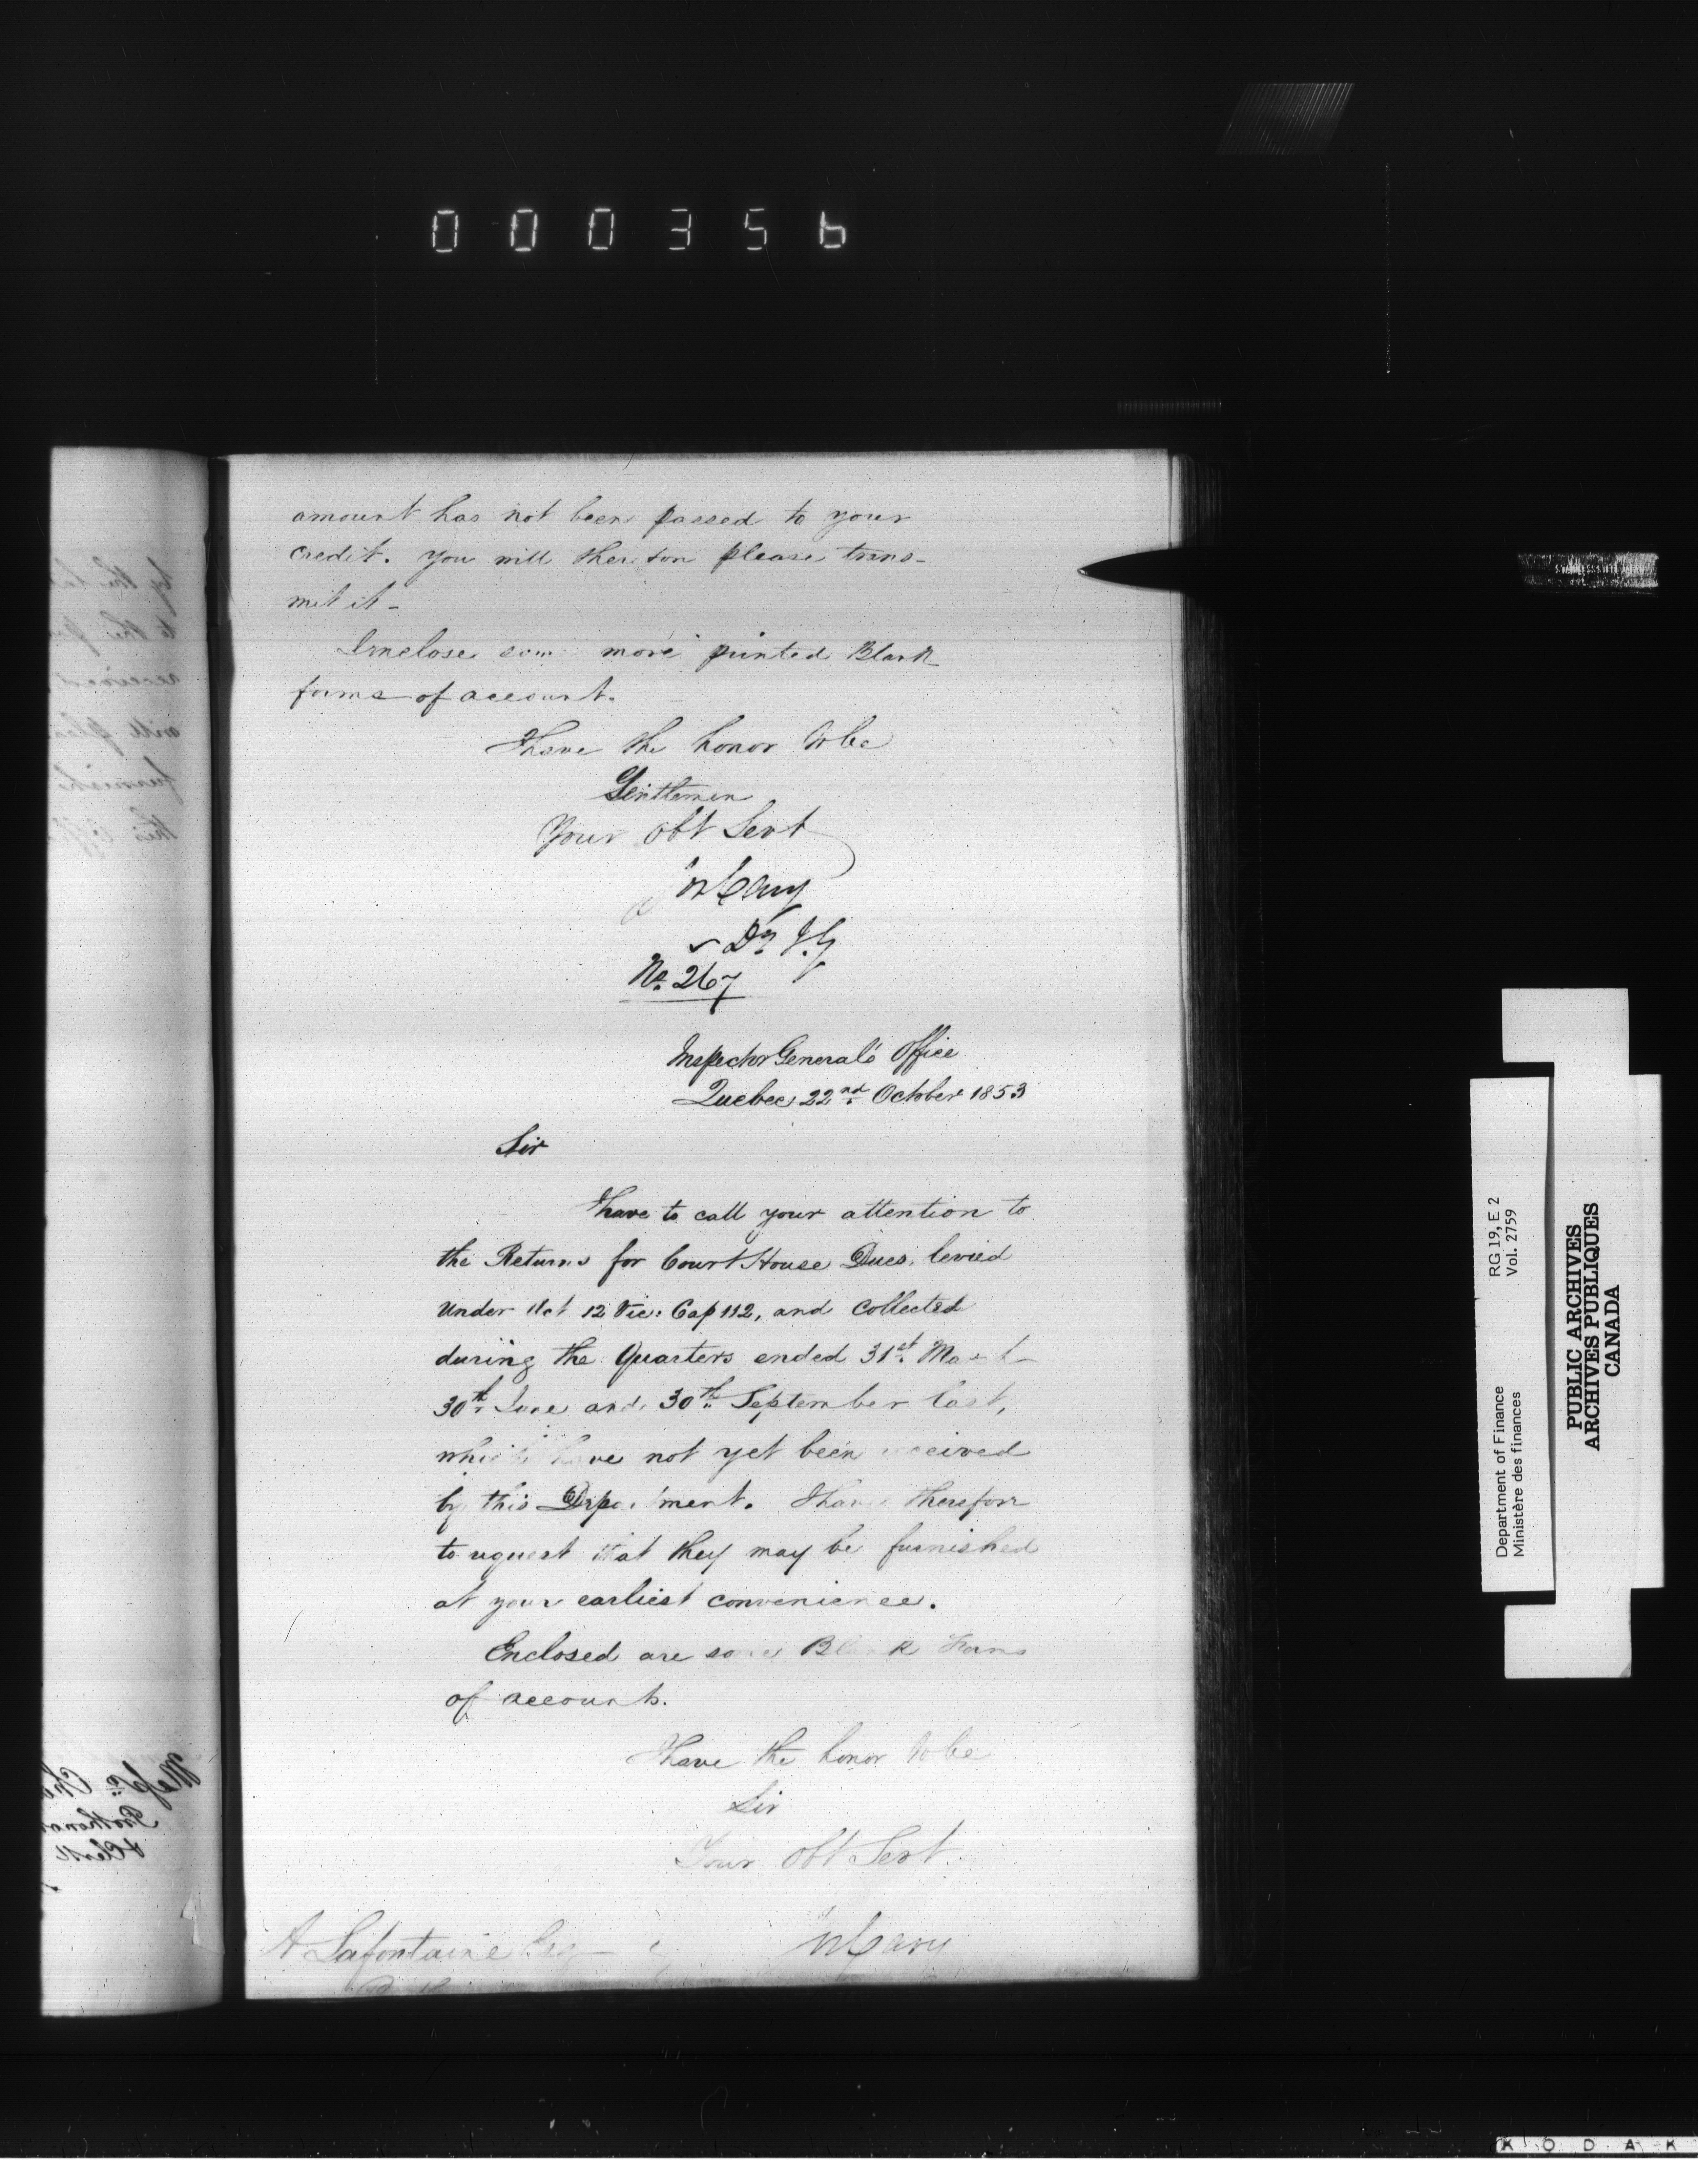 000356
amount has not been passed to your
credit. You will therefore please trans-
mit it -
I enclose some more printed Blank
forms of account.
I have the honor to be
Gentlemen
Your Obt Servt
Jos Cary
Dy. I. G
No. 267
Inspector General's Office
Quebec 22nd October 1853
Sir
I have to call your attention to
the Returns for Court House Dues, levied
under Act 12 Vic: Cap 112, and collected
during the Quarters ended 31st March
30th June and 30th September last,
which have not yet been received
by this Department. I have therefore
to request that they may be furnished
at your earliest convenience.
Enclosed are some Blank Forms
of accounts.
I have the honor to be
Sir
Your Obt Servt
Jos Cary
A Lafontaine Esq
RG 19, E 2
Vol. 2759
Department of Finance
Ministère des finances
PUBLIC ARCHIVES
ARCHIVES PUBLIQUES
CANADA
KODAK